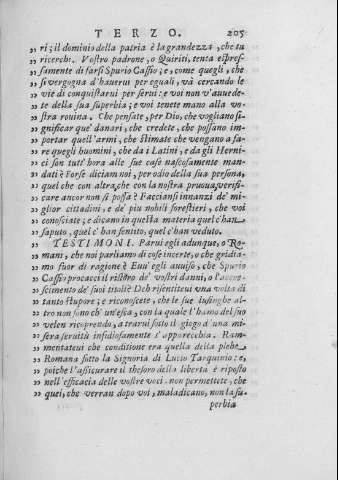 TERZO. 205
„ ri; il dominio della patria è la grandezza, che tu
„ ricerchi. Vostro padrone, o Quiriti, tenta espres-
„ samente di farsi Spurio Cassio; e, come quegli, che
„ si vergogna d'haverui per eguali, và cercando le
„ vie di conquistarui per serui: e voi non v'auue-
„ dete della sua superbia; e voi tenete mano alla vo-
„ stra rouina. Che pensate, per Dio, che vogliano si-
„ gnificar que' danari, che credete, che possano im-
„ portar quell'armi, che stimate che vengano a fa-
„ re quegli huomini, che da i Latini, e da gli Herni-
„ ci son tutt'hora alle sue case nascosamente man-
„ dati? Forse diciam noi, per odio della sua persona,
„ quel che con altra, che con la nostra pruoua, verifi-
„ care ancor non si possa? Facciansi innanzi de' mi-
„ glior cittadini, e de' piu nobili forestieri, che voi
„ conosciate; e dicano in questa materia quel c'han
„ saputo, quel c'han sentito, quel c'han veduto.
„ TESTIMONI. Parui egli adunque, o Ro-
„ mani, che noi parliamo di cose incerte, o che gridia-
„ mo fuor di ragione? Euu' egli auuiso, che Spurio
„ Cassio procacci il ristoro de' vostri danni, o l'accre-
„ scimento de' suoi titoli? Deh risentiteui vna volta di
„ tanto stupore; e riconoscete, che le sue lusinghe al-
„ tro non sono ch'un'esca, con la quale l'hamo del suo
„ velen ricoprendo, a trarui sotto il giogo d'una mi-
„ sera seruitù insidiosamente s'apparecchia. Ram-
„ mentateui che conditione era quella della plebe
„ Romana sotto la Signoria di Lucio Tarquinio: e,
„ poiche l'assicurare il thesoro della libertà è riposto
„ nell'efficacia delle vostre voci, non permettete, che
„ quei, che verran dopo voi, maladicano, non la su-
perbia